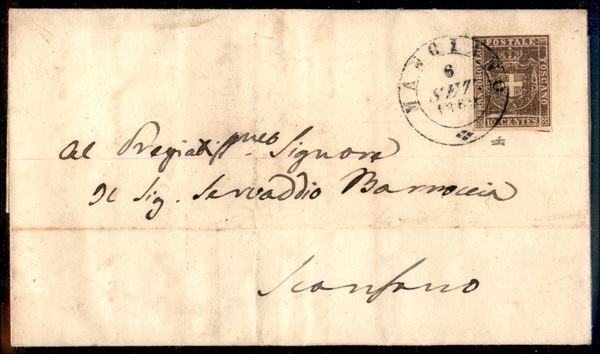 MANCIANO
6
SETT
186
POSTALE
TOSCANO
10 CENTES
Al Pregiatissimo Signore
Il Sig. Servaddio Barroccia
Scansano